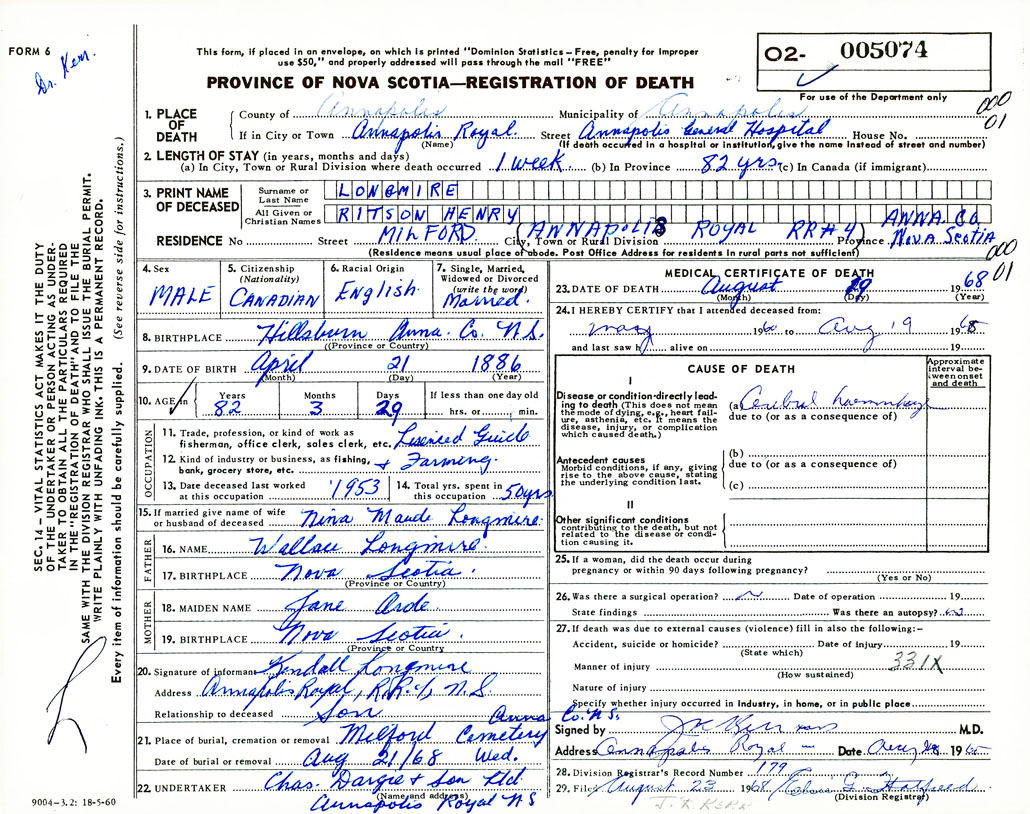 FORM 6
Dr. Kerr.
This form, if placed in an envelope, on which is printed "Dominion Statistics – Free, penalty for improper
use $50," and properly addressed will pass through the mail "FREE"
PROVINCE OF NOVA SCOTIA—REGISTRATION OF DEATH
O2- 005074
For use of the Department only
000
01
1. PLACE OF DEATH
County of Annapolis Municipality of Annapolis
If in City or Town Annapolis Royal (Name) Street Annapolis General Hospital House No.
(If death occurred in a hospital or institution, give the name instead of street and number)
2. LENGTH OF STAY (in years, months and days)
(a) In City, Town or Rural Division where death occurred 1 week. (b) In Province 82 yrs. (c) In Canada (if immigrant)
3. PRINT NAME OF DECEASED
Surname or Last Name LONGMIRE
All Given or Christian Names RITSON HENRY
RESIDENCE No Street MILFORD. City, Town or Rural Division (ANNAPOLIS ROYAL RR#4) Province ANNA. CO. Nova Scotia
(Residence means usual place of abode. Post Office Address for residents in rural parts not sufficient)
000
01
4. Sex
MALE
5. Citizenship
(Nationality)
CANADIAN
6. Racial Origin
English
7. Single, Married, Widowed or Divorced
(write the word)
Married.
8. BIRTHPLACE Hillsburn Anna. Co. N.S.
(Province or Country)
9. DATE OF BIRTH April 21 1886
(Month) (Day) (Year)
10. AGE in Years Months Days If less than one day old
82 3 29 hrs. or min.
OCCUPATION
11. Trade, profession, or kind of work as
fisherman, office clerk, sales clerk, etc. Lisenced Guide
12. Kind of industry or business, as fishing,
bank, grocery store, etc. + Farming.
13. Date deceased last worked
at this occupation 1953
14. Total yrs. spent in
this occupation 50 yrs
15. If married give name of wife
or husband of deceased Nina Maude Longmire.
FATHER
16. NAME Wallace Longmire.
17. BIRTHPLACE Nova Scotia.
(Province or Country)
MOTHER
18. MAIDEN NAME Jane Orde.
19. BIRTHPLACE Nova Scotia.
(Province or Country)
20. Signature of informant Kendall Longmire
Address Annapolis Royal, R.R. N.S.
Relationship to deceased Son
21. Place of burial, cremation or removal Milford Cemetery Anna Co. N.S.
Date of burial or removal Aug 21/68 Wed.
22. UNDERTAKER Chas. Dargie + Son Ltd.
(Name and address)
Annapolis Royal NS
9004-3.2: 18-5-60
MEDICAL CERTIFICATE OF DEATH
23. DATE OF DEATH August 19 1968
(Month) (Day) (Year)
24. I HEREBY CERTIFY that I attended deceased from:
May 1960 to Aug 19 1968
and last saw h alive on 19
CAUSE OF DEATH
Approximate interval between onset and death
I
Disease or condition directly leading to death (This does not mean the mode of dying, e.g., heart failure, asthenia, etc. It means the disease, injury, or complication which caused death.)
(a) Cerebral haemorrhage
due to (or as a consequence of)
Antecedent causes
Morbid conditions, if any, giving rise to the above cause, stating the underlying condition last.
(b)
due to (or as a consequence of)
(c)
II
Other significant conditions
contributing to the death, but not related to the disease or condition causing it.
25. If a woman, did the death occur during
pregnancy or within 90 days following pregnancy?
(Yes or No)
26. Was there a surgical operation? Date of operation 19
State findings Was there an autopsy?
27. If death was due to external causes (violence) fill in also the following:–
Accident, suicide or homicide? Date of injury 19
(State which)
331X
Manner of injury
(How sustained)
Nature of injury
Specify whether injury occurred in Industry, in home, or in public place
Signed by M.D.
Address Annapolis Royal Date Aug 19
28. Division Registrar's Record Number 179
29. Filed August 23 1968
(Division Registrar)
J. R. KERR
SEC. 14 – VITAL STATISTICS ACT MAKES IT THE DUTY
OF THE UNDERTAKER OR PERSON ACTING AS UNDER-
TAKER TO OBTAIN ALL THE PARTICULARS REQUIRED
IN THE "REGISTRATION OF DEATH" AND TO FILE THE
SAME WITH THE DIVISION REGISTRAR WHO SHALL ISSUE THE BURIAL PERMIT.
WRITE PLAINLY WITH UNFADING INK. THIS IS A PERMANENT RECORD.
Every item of information should be carefully supplied. (See reverse side for instructions.)